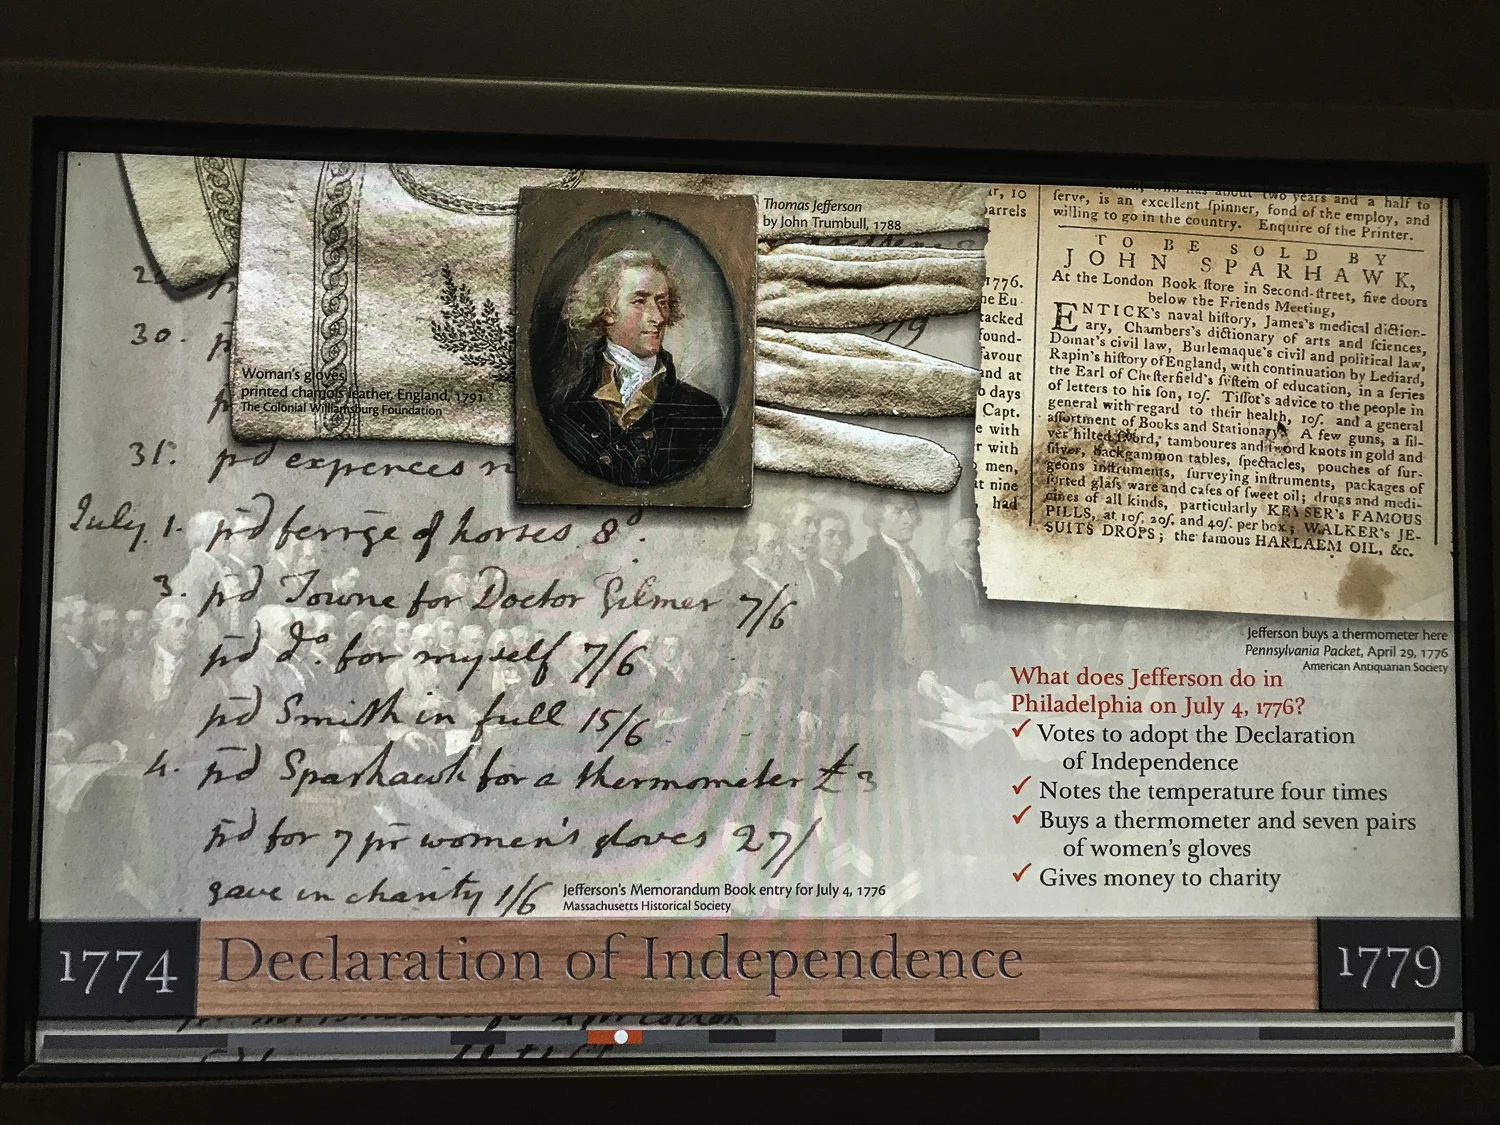 Thomas Jefferson
by John Trumbull, 1788
Woman's gloves
printed chamois leather, England, 1791
The Colonial Williamsburg Foundation
30.
31.
pd expences
July 1. pd ferrge of horses 8d.
3. pd Towne for Doctor Gilmer 7/6
pd do. for myself 7/6
pd Smith in full 15/6
4. pd Sparhawk for a thermometer £3
pd for 7 pr women's gloves 27/
gave in charity 1/6
Jefferson's Memorandum Book entry for July 4, 1776
Massachusetts Historical Society
ar, 10
arrels
1776.
he Eu-
tacked
found-
favour
and at
o days
Capt.
e with
r with
men,
at nine
had
who has about two years and a half to
ſerve, is an excellent ſpinner, fond of the employ, and
willing to go in the country. Enquire of the Printer.
TO BE SOLD BY
JOHN SPARHAWK,
At the London Book-ſtore in Second-ſtreet, five doors
below the Friends Meeting,
ENTICK's naval hiſtory, James's medical diction-
ary, Chambers's dictionary of arts and ſciences,
Domat's civil law, Burlemaque's civil and political law,
Rapin's hiſtory of England, with continuation by Lediard,
the Earl of Cheſterfield's ſyſtem of education, in a ſeries
of letters to his ſon, 10ſ. Tiſſot's advice to the people in
general with regard to their health, 10ſ. and a general
aſſortment of Books and Stationary. A few guns, a ſil-
ver hilted ſword, tamboures and ſword knots in gold and
ſilver, backgammon tables, ſpectacles, pouches of ſur-
geons inſtruments, ſurveying inſtruments, packages of
ſorted glaſs ware and caſes of ſweet oil; drugs and medi-
cines of all kinds, particularly KEYSER's FAMOUS
PILLS, at 10ſ. 20ſ. and 40ſ. per box; WALKER's JE-
SUITS DROPS; the famous HARLAEM OIL, &c.
Jefferson buys a thermometer here
Pennsylvania Packet, April 29, 1776
American Antiquarian Society
What does Jefferson do in
Philadelphia on July 4, 1776?
✓ Votes to adopt the Declaration
of Independence
✓ Notes the temperature four times
✓ Buys a thermometer and seven pairs
of women's gloves
✓ Gives money to charity
1774 Declaration of Independence 1779